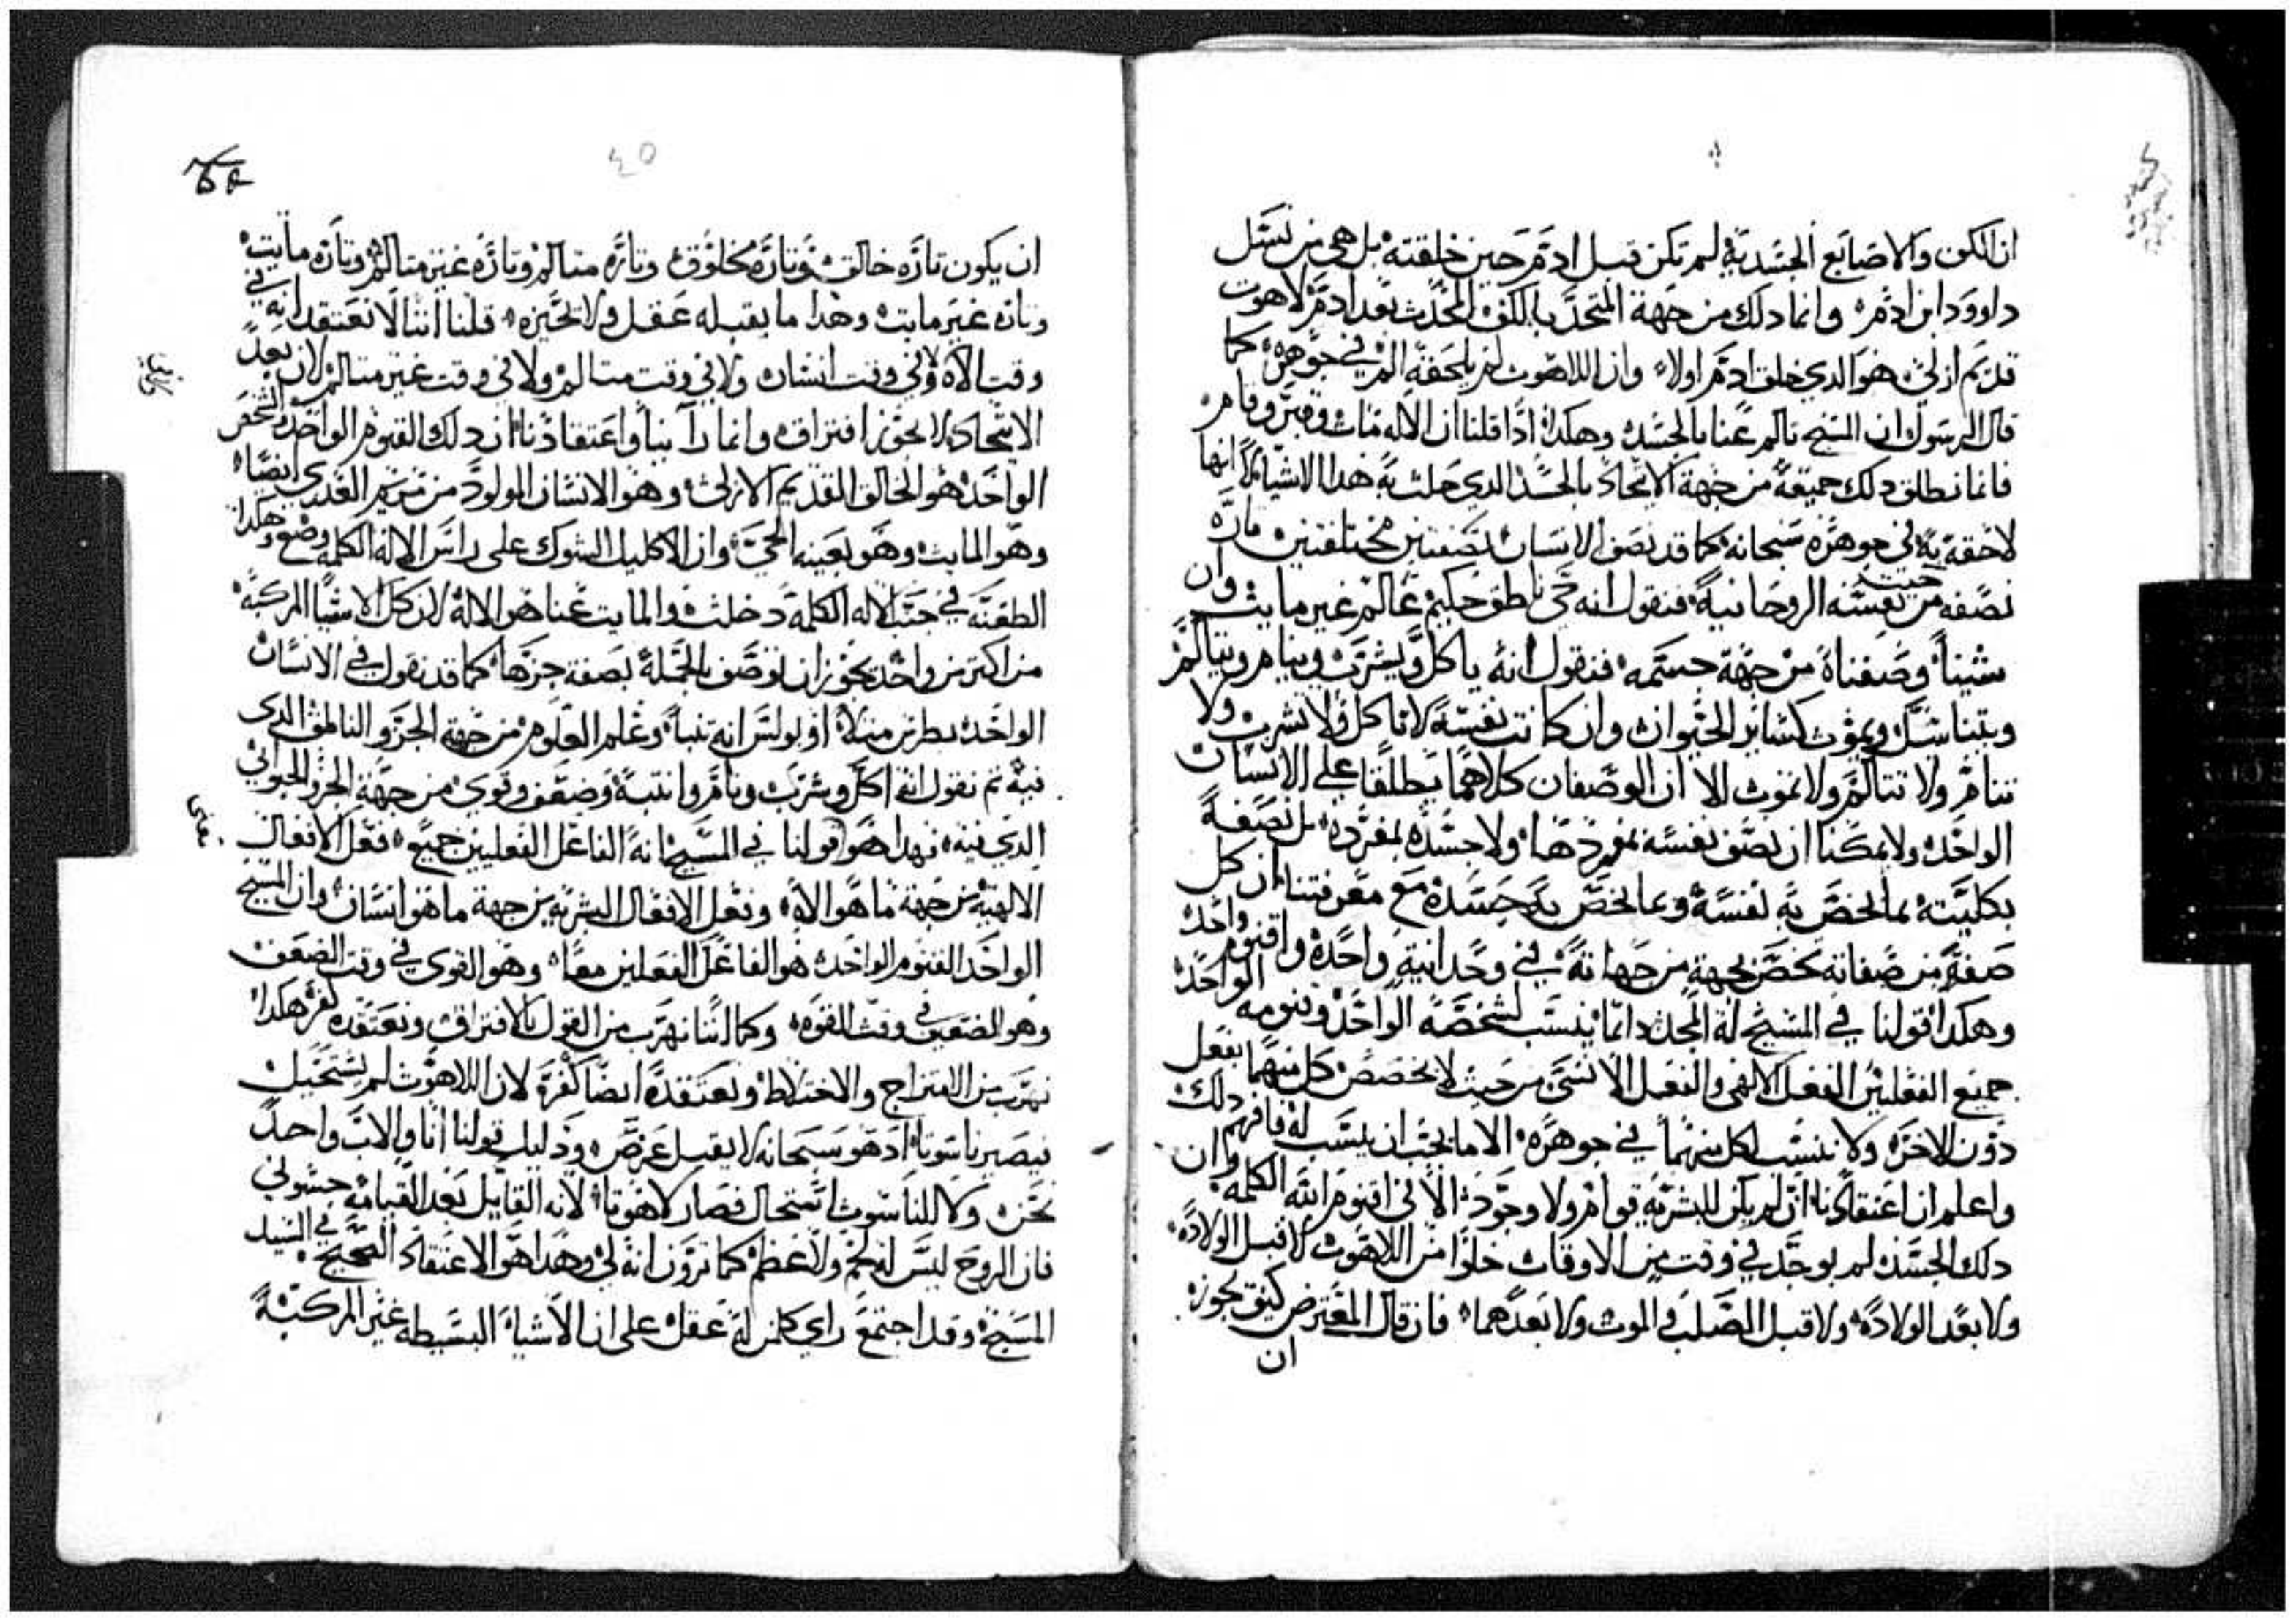 ان الكف والاصابع الجسدية لم تكن قبل ادم حين خلقته بل هي من نسل
داوود ابن ادم وانما دلك من جهة المتحد بالكف المحدث بعد ادم لاهوت
قديم ازلي هو الدي خلق ادم اولا وان اللاهوت لم يلحقه الم في جوهره كما
قال الرسول ان المسيح تالم عنا بالجسد وهكدا ادا قلنا ان الاله مات وقبر وقام
فانما نطلق دلك جميعه من جهة الاتحاد بالجسد الدي حلت به هدا الاشيا لا انها
لاحقه به في جوهره سبحانه كما قد نصف الانسان بصفتين مختلفتين تارة
نصفه من حيث نفسه الروحانية فنقول انه حي ناطق حكيم عالم غير مايت وان
شينا وصفناه من جهة جسمه فنقول انه ياكل ويشرب وينام ويتالم
ويتناسل ويموت كسائر الحيوان وان كانت نفسه لا تاكل ولا تشرب ولا
تنام ولا تتالم ولا تموت الا ان الوصفان كلاهما يطلقا على الانسان
الواحد ولا يمكنا ان نصف نفسه بمفردها ولا جسده بمفرده بل نصفه
بكليته بما يخص به نفسه وبما يخص به جسده مع معرفتنا ان كل
صفة من صفاته تخص بجهة من جهاته في وحدانية واحدة واقنوم واحد
وهكدا قولنا في المسيح له المجد دائما ينسب لشخصه الواحد وقنومه الواحد
جميع الفعلين الفعل الالهي والفعل الانسي من حيث لا يخصص كل منهما بفعل
دون الاخر ولا ننسب لكل منهما في جوهره الا ما يجب ان ينسب له فافهم دلك
واعلم ان اعتقادنا ان لم يكن للبشرية قوام ولا وجود الا في اقنوم الله الكلمه وان
دلك الجسد لم يوجد في وقت من الاوقات خلوا من اللاهوت لا قبل الولادة
ولا بعد الولادة ولا قبل الصلب والموت ولا بعدهما فان قال المعترض كيف يجوز
ان
٤٥
ان يكون تارة خالق وتارة مخلوق وتارة متالم وتارة غير متالم وتارة مايت
وتارة غير مايت وهدا ما يقبله عقل ولا تحيزه قلنا اننا لا نعتقد انه في
وقت الاه وفي وقت انسان ولا في وقت متالم ولا في وقت غير متالم لان بعد
الاتحاد لا يجوز افتراق وانما راينا واعتقادنا ان دلك القنوم الواحد والشخص
الواحد هو الخالق القديم الازلي وهو الانسان المولود من مريم القدس ايضا
وهو المايت وهو بعينه الحي وان الاكليل الشوك على راس الاله الكلمه وضع وهكدا
الطعنه في جنب الاله الكلمة دخلت والمايت عنا هو الاله لان كل الاشيا المركبة
من اكتر من واحد يجوز ان توصف بالجملة بصفة جزها كما قد نقول في الانسان
الواحد بطرس متلا او بولس انه تنبا وعلم العلوم من جهة الجزو الناطق الدي
فيه تم نقول انه اكل وشرب ونام وانتبه وضعف وقوي من جهة الجزو الحيواني
الدي فيه فهدا هو قولنا في المسيح انه الفاعل الفعلين جميع فعل الافعال
الالهية من جهة ما هو الاه وفعل الافعال البشرية من جهة ما هو انسان وان المسيح
الواحد القنوم الواحد هو الفاعل الفعلين معا وهو القوي في وقت الضعف
وهو الضعيف في وقت القوه وكما اننا نهرب من القول بالافتراق ونعتقده كفر هكدا
نهرب من الامتزاج والاختلاط ونعتقده ايضا كفر لان اللاهوت لم يستحيل
فيصير ناسوتا اد هو سبحانه لا يقبل عرض ودليل قولنا انا والاب واحد
نحن ولا الناسوت استحال فصار لاهوتا لانه القايل بعد القيامة جسوني
فان الروح ليس له لحم ولا عظم كما ترون انه لي وهدا هو الاعتقاد الصحيح في السيد
المسيح وقد اجتمع راي كلمن له عقل على ان الاشيا البسيطه غير المركبة